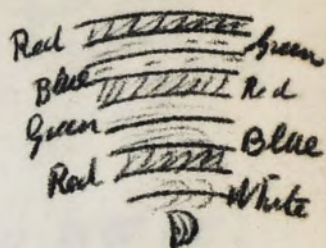 Red
Green
Blue
Red
Green
Blue
Red
White